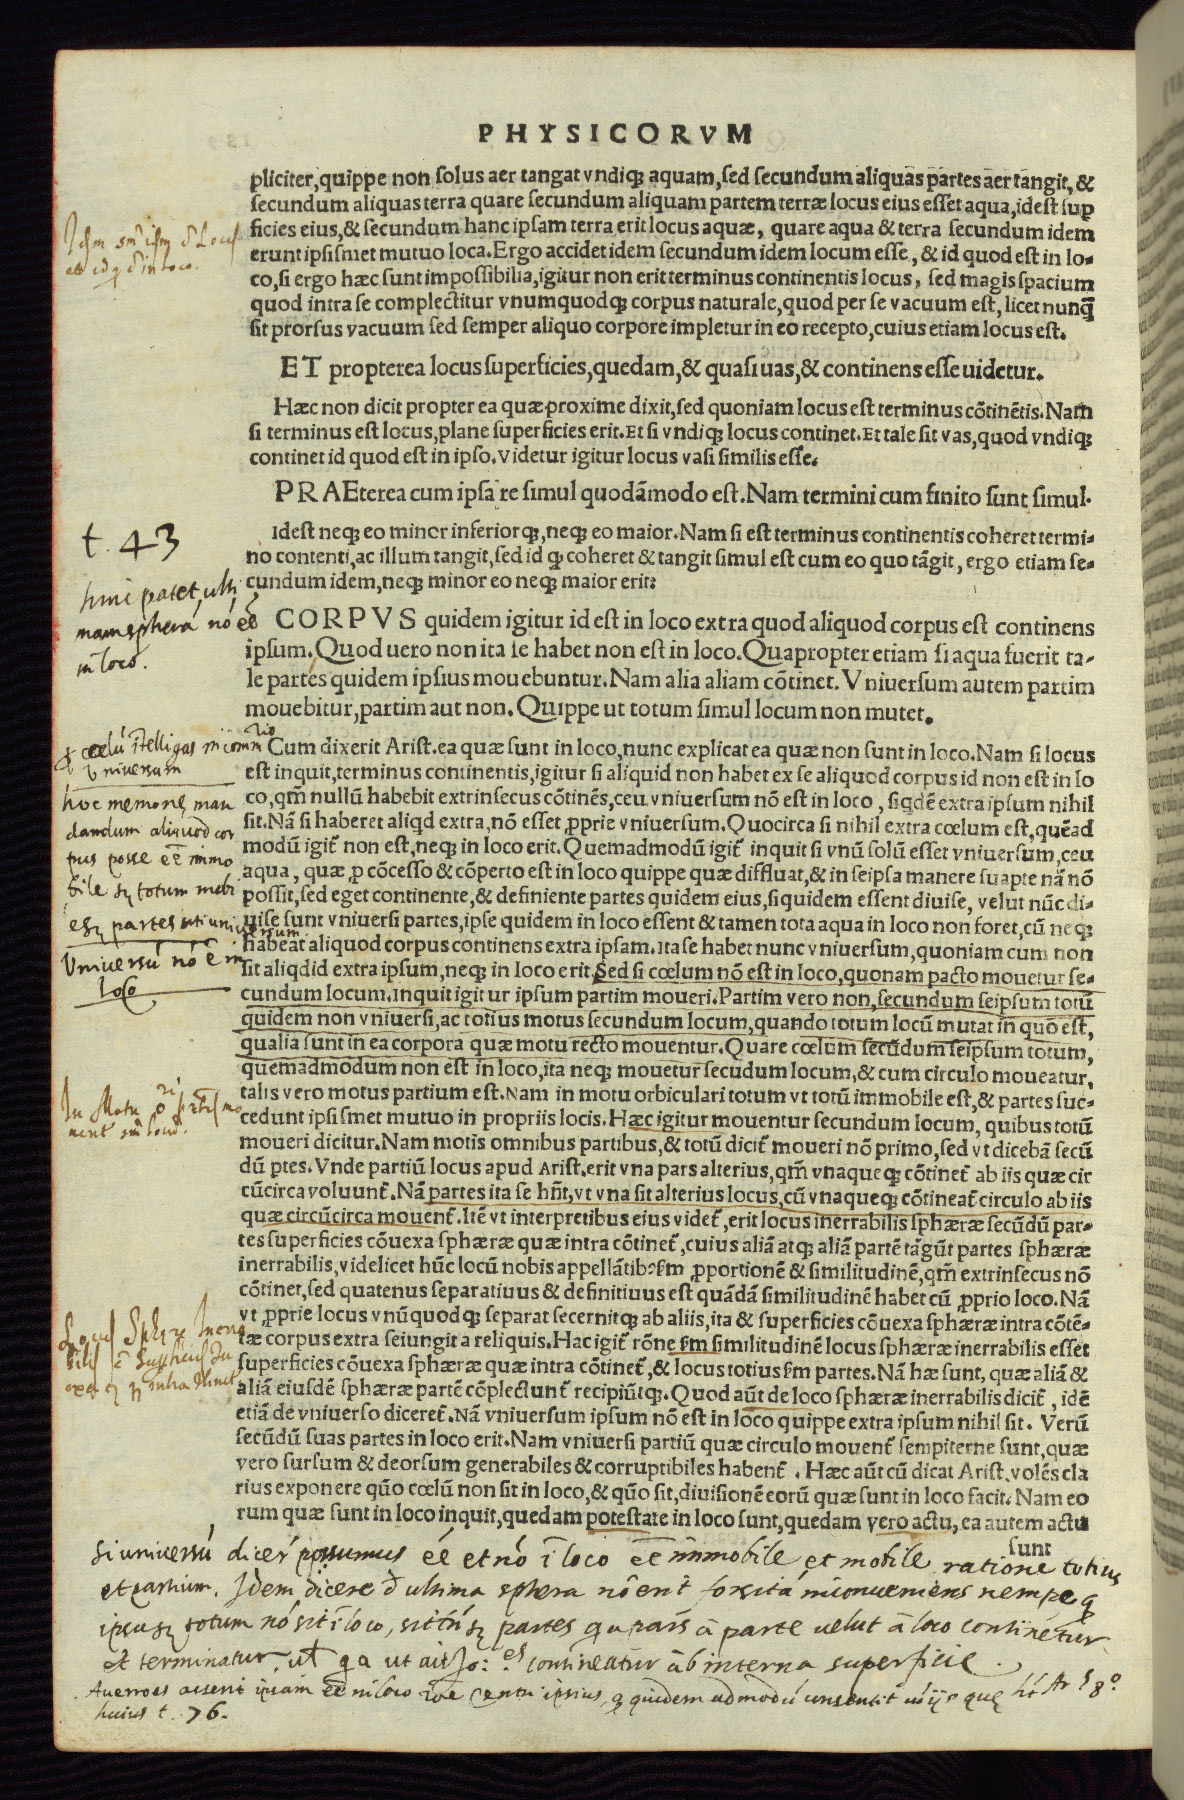 PHYSICORVM
pliciter,quippe non solus aer tangat vndiqꝫ aquam,sed secundum aliquas partes aer tangit,&
secundum aliquas terra quare secundum aliquam partem terræ locus eius esset aqua,idest sup
ficies eius,& secundum hanc ipsam terra erit locus aquæ, quare aqua & terra secundum idem
erunt ipsismet mutuo loca.Ergo accidet idem secundum idem locum esse, & id quod est in lo-
co,si ergo hæc sunt impossibilia,igitur non erit terminus continentis locus, sed magis spacium
quod intra se complectitur vnumquodqꝫ corpus naturale,quod per se vacuum est, licet nunq̃
sit prorsus vacuum sed semper aliquo corpore impletur in eo recepto,cuius etiam locus est.
ET propterea locus superficies,quedam,& quasi uas,& continens esse uidetur.
Hæc non dicit propter ea quæ proxime dixit,sed quoniam locus est terminus cõtinẽtis.Nam
si terminus est locus,plane superficies erit.Et si vndiqꝫ locus continet.Et tale sit vas,quod vndiqꝫ
continet id quod est in ipso.Videtur igitur locus vasi similis esse.
PRAEterea cum ipsa re simul quodãmodo est.Nam termini cum finito sunt simul.
t. 43
Idest neqꝫ eo minor inferiorqꝫ,neqꝫ eo maior.Nam si est terminus continentis coheret termi-
no contenti,ac illum tangit,sed id qꝫ coheret & tangit simul est cum eo quo tãgit, ergo etiam se-
cundum idem,neqꝫ minor eo neqꝫ maior erit:
hinc patet ulti
mam spherá nó eẽ
in loco.
CORPVS quidem igitur id est in loco extra quod aliquod corpus est continens
ipsum.Quod uero non ita se habet non est in loco.Quapropter etiam si aqua fuerit ta-
le partes quidem ipsius mouebuntur.Nam alia aliam cõtinet.Vniuersum autem partim
mouebitur,partim aut non.Quippe ut totum simul locum non mutet.
cœlú ītelligas
Vniuersum
Cum dixerit Arist.ea quæ sunt in loco,nunc explicat ea quæ non sunt in loco.Nam si locus
est inquit,terminus continentis,igitur si aliquid non habet ex se aliquod corpus id non est in lo
co,qm̃ nullũ habebit extrinsecus cõtinẽs,ceu vniuersum nõ est in loco, siqdẽ extra ipsum nihil
sit.Nã si haberet aliqd extra,nõ esset ꝓprie vniuersum.Quocirca si nihil extra cœlum est,quẽad
modũ igit̃ non est,neqꝫ in loco erit.Quemadmodũ igit̃ inquit si vnũ solũ esset vniuersum,ceu
aqua, quæ ꝓ cõcesso & cõperto est in loco quippe quæ diffluat,& in seipsa manere suapte nã nõ
possit,sed eget continente,& definiente partes quidem eius,siquidem essent diuise, velut nũc di-
uise sunt vniuersi partes,ipse quidem in loco essent & tamen tota aqua in loco non foret,cũ neqꝫ
habeat aliquod corpus continens extra ipsam.Ita se habet nunc vniuersum,quoniam cum non
sit aliqdid extra ipsum,neqꝫ in loco erit.Sed si cœlum nõ est in loco,quonam pacto mouetur se-
cundum locum.Inquit igitur ipsum partim moueri.Partim vero non,secundum seipsum totũ
quidem non vniuersi,ac totius motus secundum locum,quando totum locũ mutat in quo est,
qualia sunt in ea corpora quæ motu recto mouentur.Quare cœlum secũdum seipsum totum,
quemadmodum non est in loco,ita neqꝫ mouetur secudum locum,& cum circulo moueatur,
talis vero motus partium est.Nam in motu orbiculari totum vt totũ immobile est,& partes suc-
cedunt ipsismet mutuo in propriis locis.Hæc igitur mouentur secundum locum, quibus totũ
moueri dicitur.Nam motis omnibus partibus,& totũ dicit̃ moueri nõ primo,sed vt dicebã secũ
dũ ptes.Vnde partiũ locus apud Arist.erit vna pars alterius,qm̃ vnaqueqꝫ cõtinet̃ ab iis quæ cir
cũcirca voluunt̃.Nã partes ita se hñt,vt vna sit alterius locus,cũ vnaqueqꝫ cõtineat̃ circulo ab iis
quæ circũcirca mouent̃.Itẽ vt interpretibus eius videt̃,erit locus inerrabilis sphæræ secũdũ par-
tes superficies cõuexa sphæræ quæ intra cõtinet̃,cuius aliã atqꝫ aliã partẽ tãgũt partes sphæræ
inerrabilis,videlicet hũc locũ nobis appellãtibꝰ ẜm ꝓportionẽ & similitudinẽ,qm̃ extrinsecus nõ
cõtinet,sed quatenus separatiuus & definitiuus est quãdã similitudinẽ habet cũ ꝓprio loco.Nã
vt ꝓprie locus vnũquodqꝫ separat secernitqꝫ ab aliis,ita & superficies cõuexa sphæræ intra cõtẽ-
tæ corpus extra seiungit a reliquis.Hac igit̃ rõne ẜm similitudinẽ locus sphæræ inerrabilis esset
superficies cõuexa sphæræ quæ intra cõtinet̃,& locus totius ẜm partes.Nã hæ sunt,quæ aliã &
aliã eiusdẽ sphæræ partẽ cõplectunt̃ recipiũtqꝫ.Quod aũt de loco sphæræ inerrabilis dicit̃, idẽ
etiã de vniuerso diceret̃.Nã vniuersum ipsum nõ est in loco quippe extra ipsum nihil sit. Verũ
secũdũ suas partes in loco erit.Nam vniuersi partiũ quæ circulo mouent̃ sempiterne sunt,quæ
vero sursum & deorsum generabiles & corruptibiles habent̃. Hæc aũt cũ dicat Arist.volẽs cla
rius exponere quõ cœlũ non sit in loco,& quõ sit,diuisionẽ eorũ quæ sunt in loco facit. Nam eo
rum quæ sunt in loco inquit,quedam potestate in loco sunt,quedam vero actu, ea autem actu
sunt
hoc memorię man
dandum aliquod cor
pus posse eẽ immo
bile totum mobi
partes uti universum.
Vniuersú nó ẽ in
loco
Si universú dicer possumus eẽ et nó ī loco eẽ immobile et mobile ratione totius
et partium. Idem dicere ultima sphera nó erit forsitá inconveniens nempe
totum nó sit ī loco, partes pars à parte uelut à loco continetur
et terminatur, ut ait contineatur ab interna superficie.
Averroes ipsam eẽ in loco ipsius, quidem
huius t. 76.